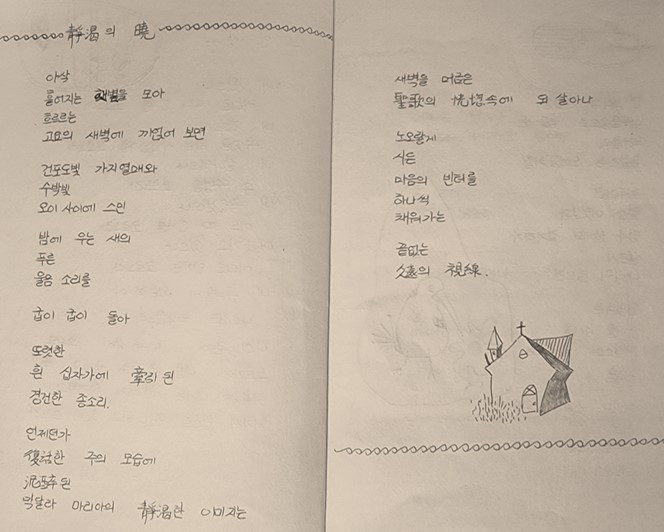 靜渴의 曉
아삭
풀어지는 새벽을 모아
흐르는
고요의 새벽에 끼얹어 보면
건포도빛 가지열매와
수박빛
오이 사이에 스민
밤에 우는 새의
푸른
울음 소리를
굽이 굽이 돌아
또렷한
흰 십자가에 牽引된
경건한 종소리.
언제던가
復活한 주의 모습에
된
막달라 마리아의 靜渴한 이미지는
새벽을 머금은
聖歌의 恍惚속에 되살아나
노오랗게
시든
마음의 빈터를
하나씩
채워가는
끝없는
久遠의 視線.